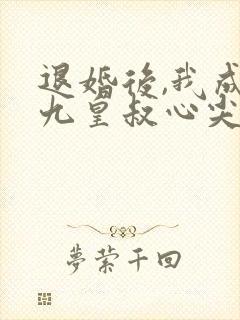 退婚後,我成
九皇叔心尖
夢縈千回